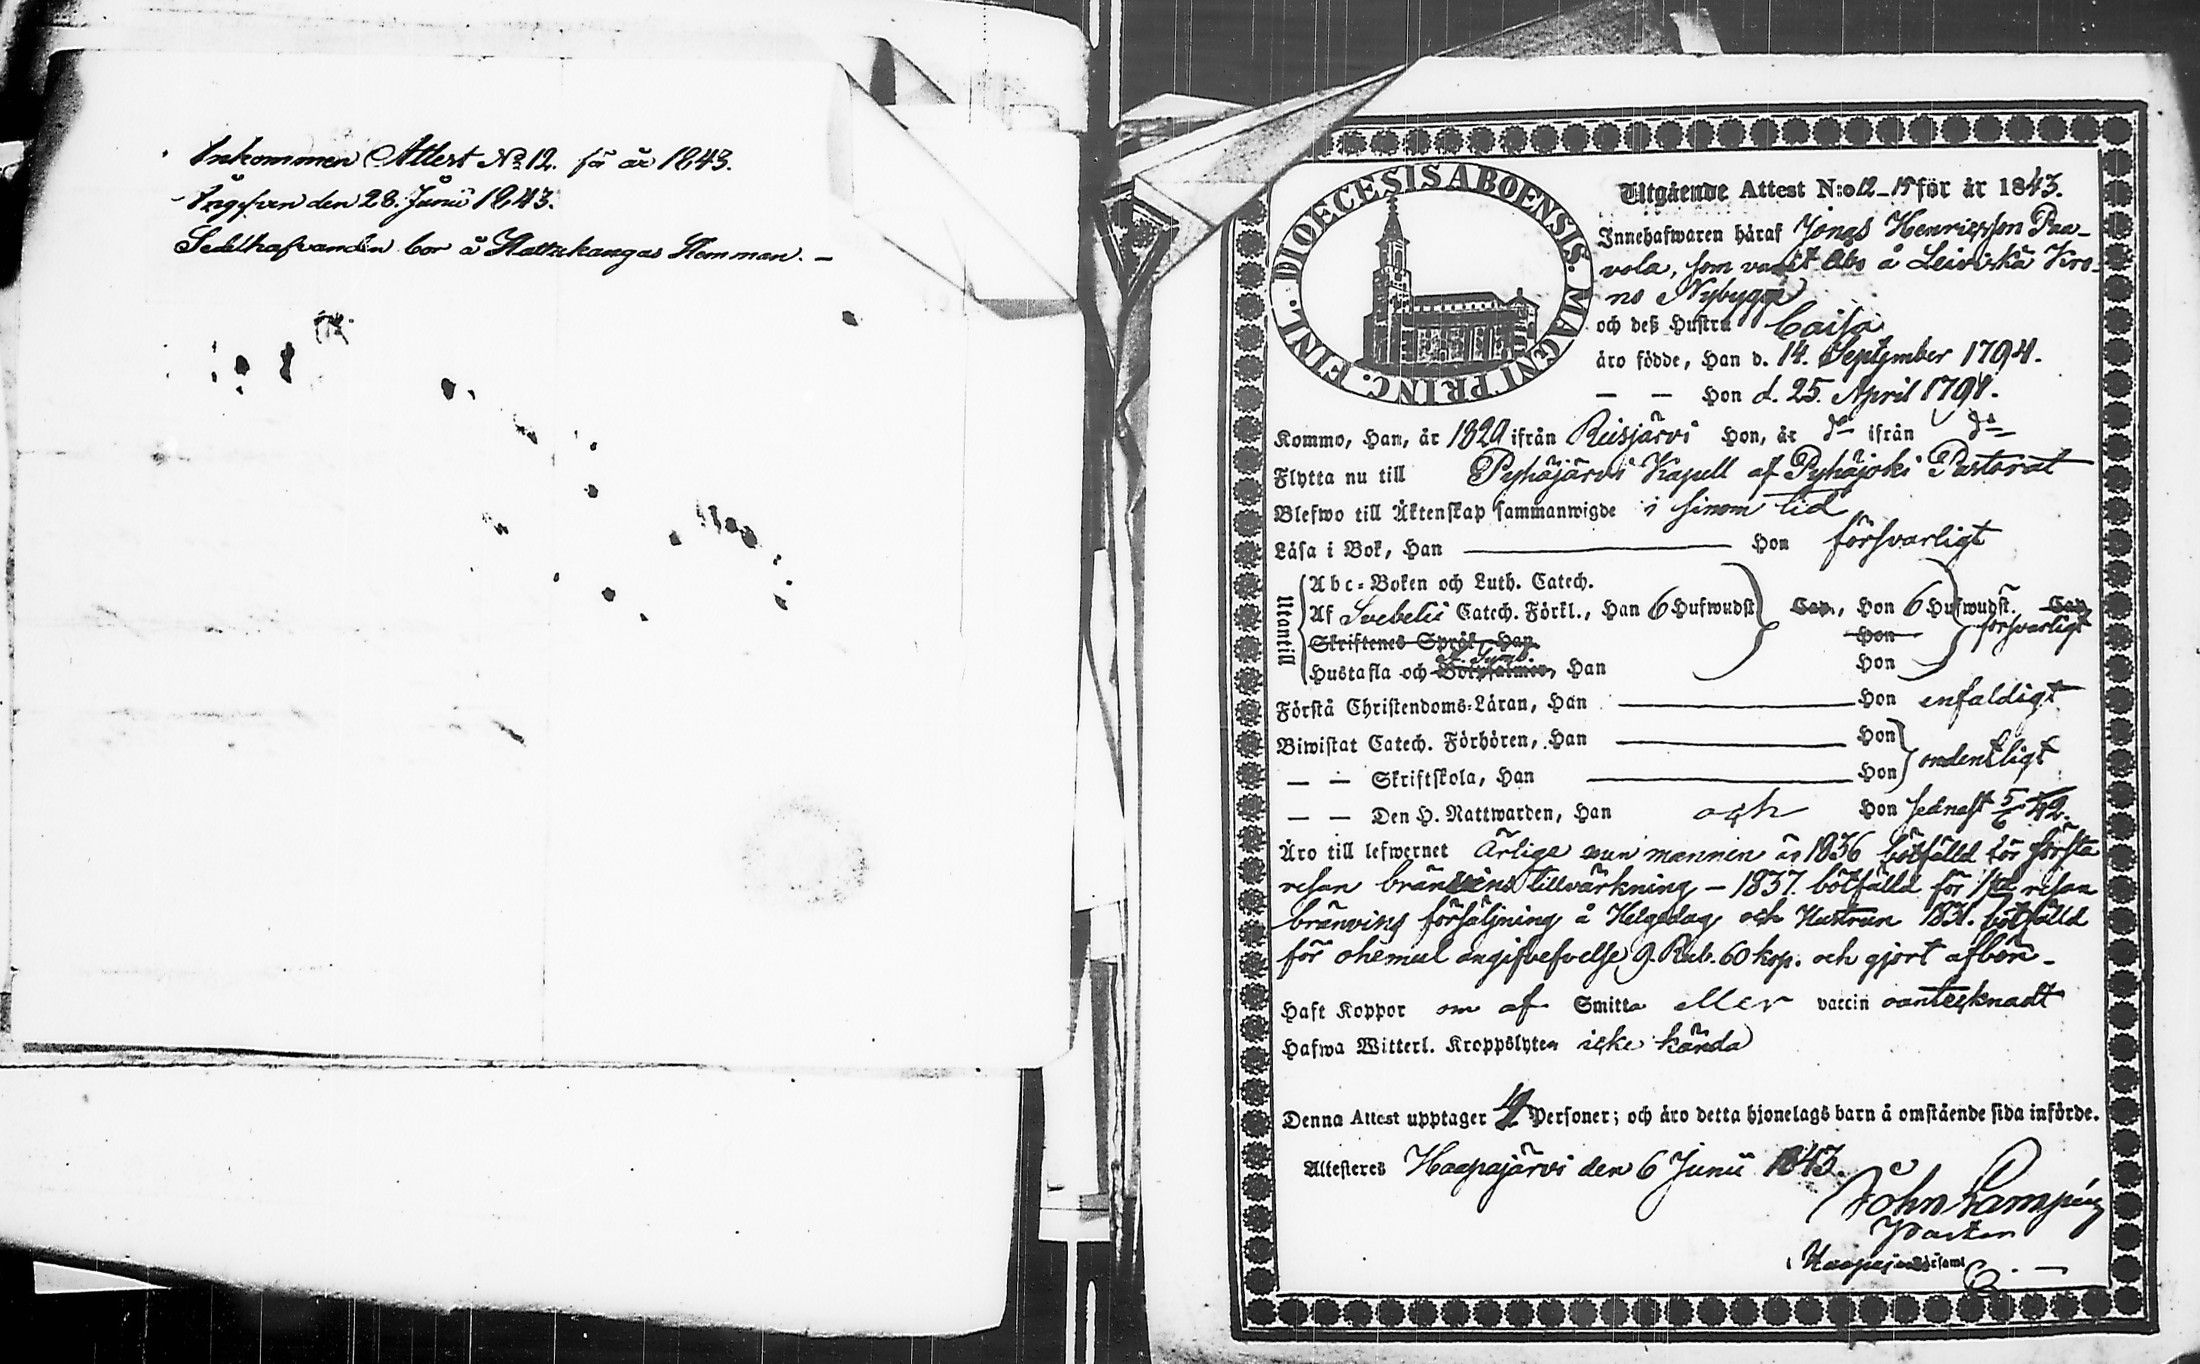 Inkommen Attest No 12. få år 1843.
Ingifven den 28. Junii 1843.
Sedelhafvanden bor å Hattukangas Hemman. –
DIOECESIS ABOENSIS. MAGNI PRINC. FINL.
Utgående Attest N:o 12–15 för år 1843.
Innehafwaren häraf Jonas Henricsson Paa-
vola, som varit Åbo å Leiviskä Kro-
no Nybygge
och deß Hustru Caisa
äro födde, Han d. 14. September 1794.
— — Hon d. 25. April 1791.
Kommo, Han, år 1829 ifrån Reisjärvi Hon, år do ifrån do
Flytta nu till Pyhäjärvi Kapell af Pyhäjoki Pastorat
Blefwo till Äktenskap sammanwigde i sinom tid
Läsa i Bok, Han — Hon försvarligt
Utantill
Abc-Boken och Luth. Catech.
Af Svebelii Catech. Förkl., Han 6 Hufwudst. Cap., Hon 6 Hufwudst. Cap.
försvarligt
Skriftenes Språk, Han Hon
Hustafla och Botpsalmer, Han Hon
Förstå Christendoms-Läran, Han — Hon enfaldigt
Biwistat Catech. Förhören, Han — Hon
ordentligt
— — Skriftskola, Han — Hon
— — Den H. Nattwarden, Han och Hon sednast 5/6 42.
Äro till lefwernet Ärliga men mannen år 1836 bötfälld för första
resan bränvins tillvärkning – 1837. bötfälld för 1sta resan
bränvins försäljning å Helgedag och Hustrun 1831. bötfälld
för ohemul angifvelse 9. Rub. 60 kop. och gjort afbön –
Haft Koppor om af Smitta eller vaccin oantecknadt
Hafwa Witterl. Kroppslyten icke kända
Denna Attest upptager 4 Personer; och äro detta hjonelags barn å omstående sida införde.
Attesteres Haapajärvi den 6 Junii 1843.
John Lampén
Pastor